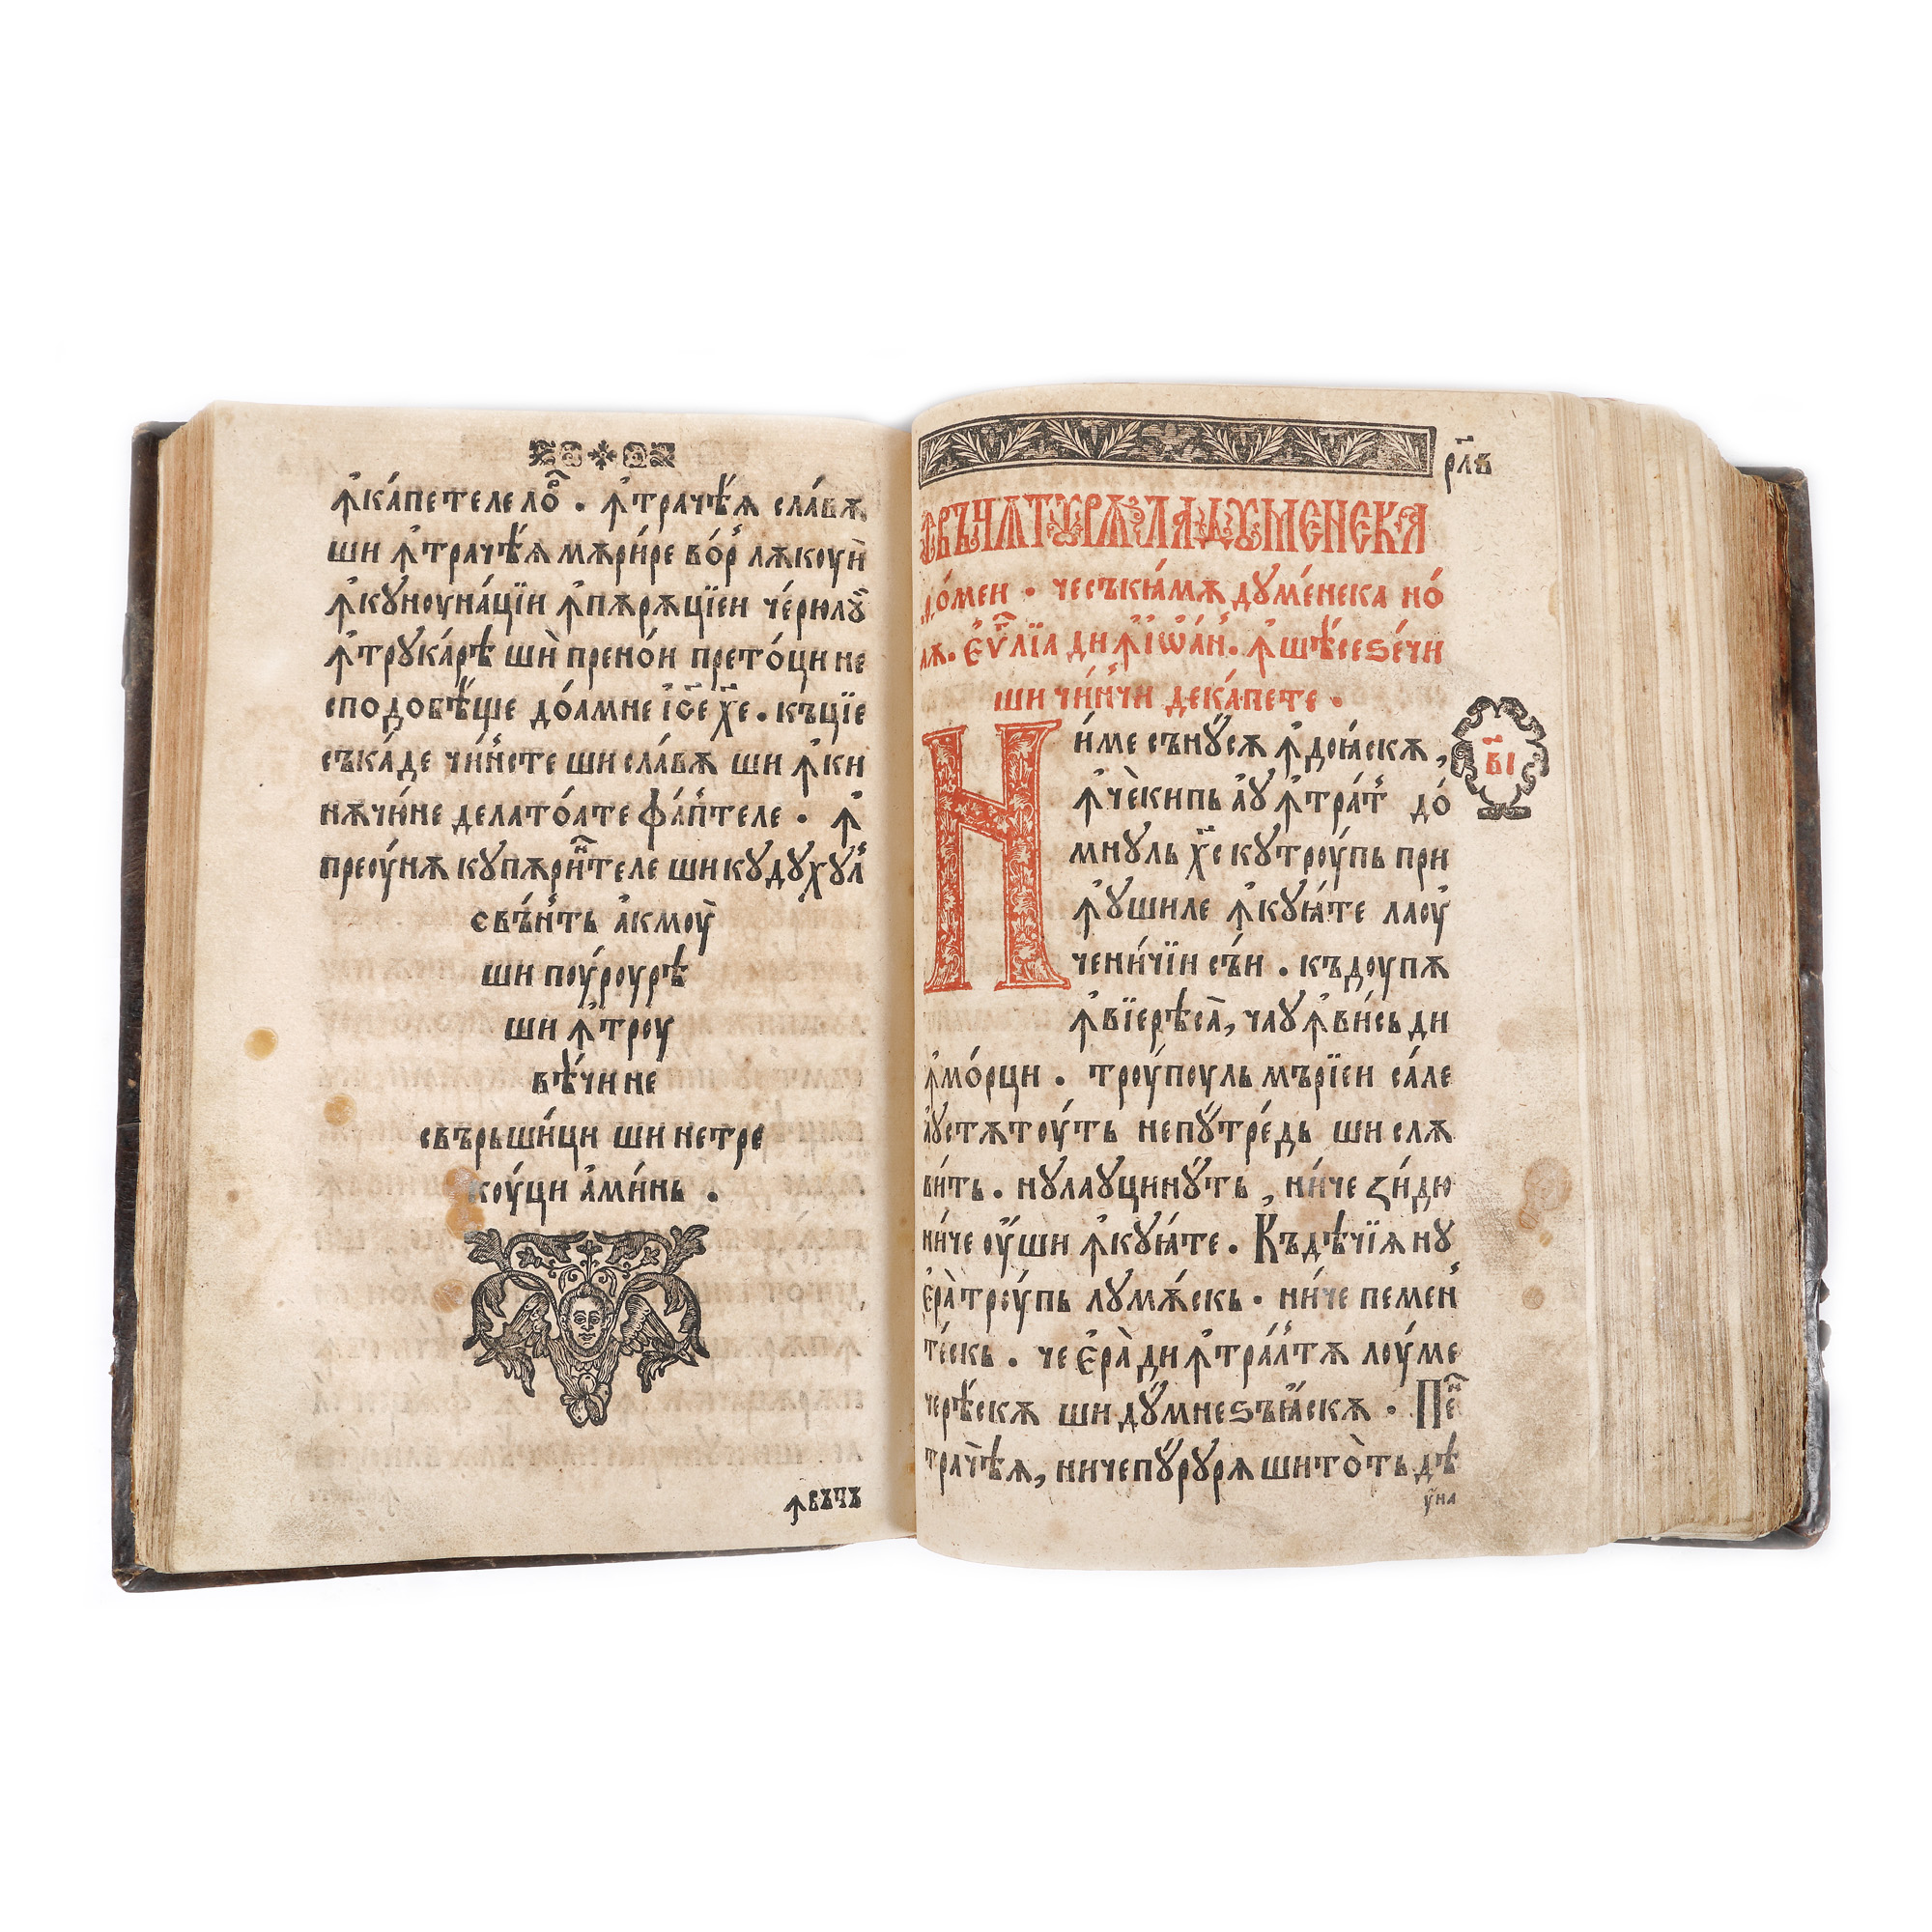 ꙟ҆ка́петеле лѻ҆ⷬ . ꙟ҆трачѣ́ѧ сла́вѫ
ши ꙟ҆трачѣ́ѧ мѫри́ре во́рⷭ лѫкоуи̾
ꙟ҆кꙋноуна́цїи ꙟ҆пѫрѫцїеи че́рюлꙋⷩ
ꙟ҆трꙋка́рѣ ши̾ пре но́и прето́ци не
сподобѣ́ще до́амне і҆с҃е х҃е . къцїе
съкаде чи́нⷭте ши сла́вѫ ши ꙟ҆ки
нѫчи́не дела то́ате фа́пⷮтеле . ꙟ҆
преоу́нѫ кꙋпѫри́нⷮтеле ши кꙋ дꙋхꙋлⷭ
свъ́нⷮть а҆кмоу̀
ши поу́роурѣ
ши ꙟ҆троу
вѣ́чи не
свърьши́ци ши нетре
коу́ци а҆ми́нь .
ꙟвъчъ
рл҃в
ꙟвъчѫтꙋрѫ ла дꙋменека
то́мен . че съ кїа́мѫ дꙋме́нека но́
аѫ . є҆ѵⷢ҇лїа ди ꙟ҆ і҆ѡа́нⷩ . ꙟ҆ шѣ́се ѕе́чи
ши чи́нⷩчи де ка́пете .
Ни́ме сънꙋ́сѫ ꙟ҆доꙗ́скѫ ,
в҃і
ꙟ҆ че́ кипь а҆ꙋ ꙟ҆тра́тⷮ до́
мнꙋль х҃с кꙋ троу́пь при
ꙟ҆ ꙋшиле ꙟ҆кꙋꙗ́те ла оу҆
чени́чїи съ́и . къ доупѫ
ꙟ҆вїерѣ са̀ , ча ꙋ ꙟ҆ви́сь ди
ꙟ҆ мо́рци . троу́поуль мърїеи са́ле
а҆ꙋ стѫтоу́ть непꙋ́тре́дь ши слѫ
ви́ть . нꙋ лаꙋ цинꙋ́ть , ни́че зи́дю
ни́че оу́ши ꙟ҆кꙋꙗ́те . Къ дѣчїѧ нꙋ
є҆ра̀ троу́пь лꙋмѫ́скь . ни́че пеменⷭ
те́скь . че є҆ра̀ ди ꙟ҆тра́лⷮтѫ лоу́ме
черѣ́скѫ ши дꙋ́мнеѕъꙗ́скѫ . Пенⷩ
трачѣ́ѧ , ниче пꙋ́рꙋрѧ ши то̀ть дѣ
ꙋна